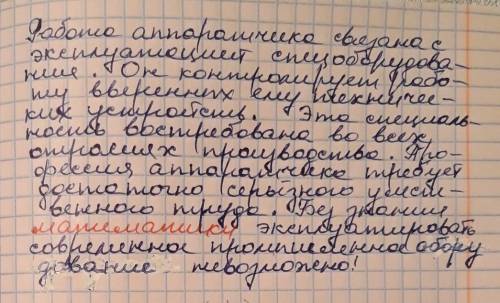 Работа аппаратчика связана с
эксплуатацией спецоборудова-
ния. Он контролирует рабо-
ту вверенных ему техничес-
ких устройств. Эта специаль-
ность востребована во всех
отраслях производства. Про-
фессия аппаратчика требует
достаточно серьёзного умст-
венного труда. Без знания
математики эксплуатировать
современное промышленное обору
дование невозможно!